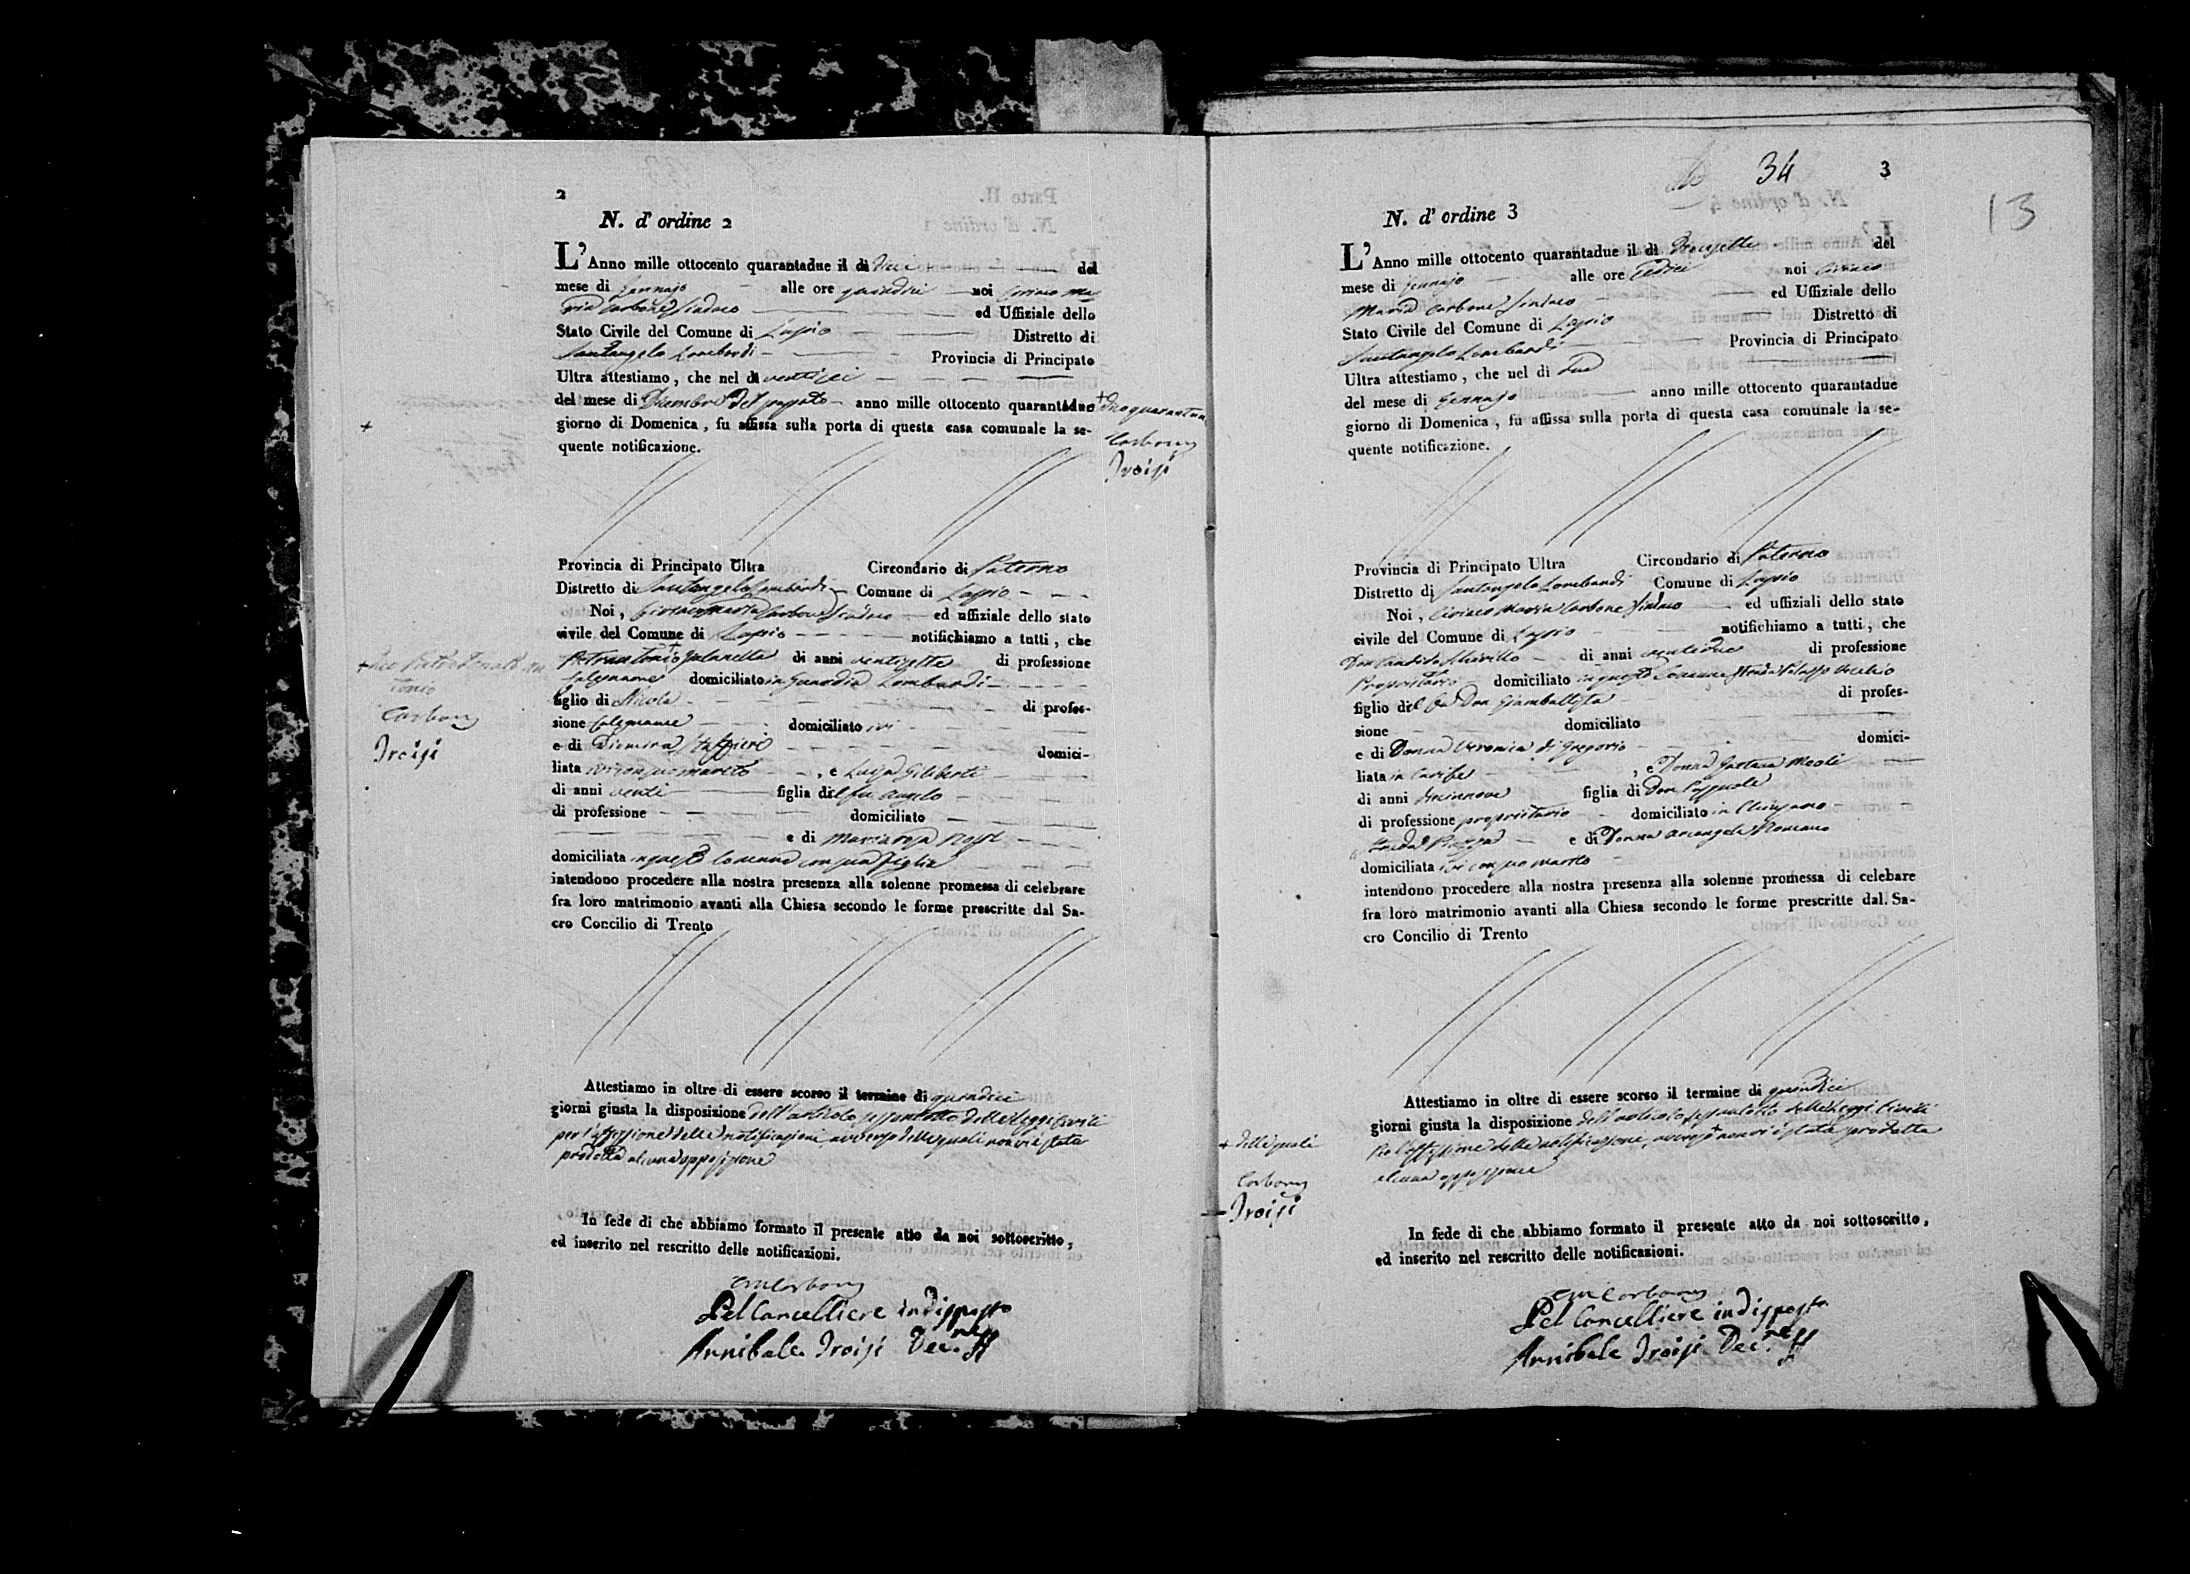 2
N. d' ordine 2
L'Anno mille ottocento quarantadue il dì dieci del
mese di Gennajo alle ore quindici noi Ciriaco Ma
ria Carbone Sindaco ed Uffiziale dello
Stato Civile del Comune di Lapio Distretto di
Santangelo Lombardi Provincia di Principato
Ultra attestiamo, che nel dì ventisei
del mese di Dicembre del passato anno mille ottocento quarantadue
giorno di Domenica, fu affissa sulla porta di questa casa comunale la se-
quente notificazione.
+
Carbone
Troisi
Provincia di Principato Ultra Circondario di Paterno
Distretto di Santangelo Lombardi Comune di Lapio
Noi, Ciriaco Maria Carbone Sindaco ed uffiziale dello stato
civile del Comune di Lapio notifichiamo a tutti, che
di anni ventisette di professione
falegname domiciliato in Guardia Lombardi
figlio di Nicola di profes-
sione falegname domiciliato ivi
e di domici-
liata ivi con suo marito, e Luisa Giliberti
di anni venti figlia del fu Angelo
di professione domiciliato
e di Mariarosa
domiciliata in questo Comune con sua figlia
intendono procedere alla nostra presenza alla solenne promessa di celebrare
fra loro matrimonio avanti alla Chiesa secondo le forme prescritte dal Sa-
cro Concilio di Trento
Carbone
Troisi
Attestiamo in oltre di essere scorso il termine di quindici
giorni giusta la disposizione dell'articolo sessantotto delle Leggi Civili
per l'affissione delle notificazioni, avverso delle quali non vi è stata
prodotta alcuna opposizione
In fede di che abbiamo formato il presente atto da noi sottoscritto,
ed inserito nel rescritto delle notificazioni.
CM Carbone
Pel Cancelliere indisposto
Annibale Troisi Dec.ne ff
34
3
13
N. d' ordine 3
L'Anno mille ottocento quarantadue il dì diecisette del
mese di Gennajo alle ore sedici noi Ciriaco
Maria Carbone Sindaco ed Uffiziale dello
Stato Civile del Comune di Lapio Distretto di
Santangelo Lombardi Provincia di Principato
Ultra attestiamo, che nel dì due
del mese di Gennajo anno mille ottocento quarantadue
giorno di Domenica, fu affissa sulla porta di questa casa comunale la se-
quente notificazione.
Provincia di Principato Ultra Circondario di Paterno
Distretto di Santangelo Lombardi Comune di Lapio
Noi, Ciriaco Maria Carbone Sindaco ed uffiziali dello stato
civile del Comune di Lapio notifichiamo a tutti, che
Don Candido di anni ventidue di professione
Proprietario domiciliato in questo Comune Strada Palazzo Vecchio
figlio del fu Don Giambattista di profes-
sione domiciliato
e di Donna Veronica di Gregorio domici-
liata in Carife, e Donna Gaetana Meoli
di anni diecinove figlia di Don Pasquale
di professione proprietario domiciliato in Chiusano
Strada Piazza e di Donna Arcangela Romano
domiciliata ivi con suo marito
intendono procedere alla nostra presenza alla solenne promessa di celebare
fra loro matrimonio avanti alla Chiesa secondo le forme prescritte dal. Sa-
cro Concilio di Trento
Attestiamo in oltre di essere scorso il termine di quindici
giorni giusta la disposizione dell'articolo sessantotto delle Leggi Civili
Per l'affissione delle notificazione, avverso + non vi è stata prodotta
alcuna opposizione
+ delle quali
Carbone
Troisi
In fede di che abbiamo formato il presente atto da noi sottoscritto,
ed inserito nel rescritto delle notificazioni.
CM Carbone
Pel Cancelliere indisposto
Annibale Troisi Dec.ne ff